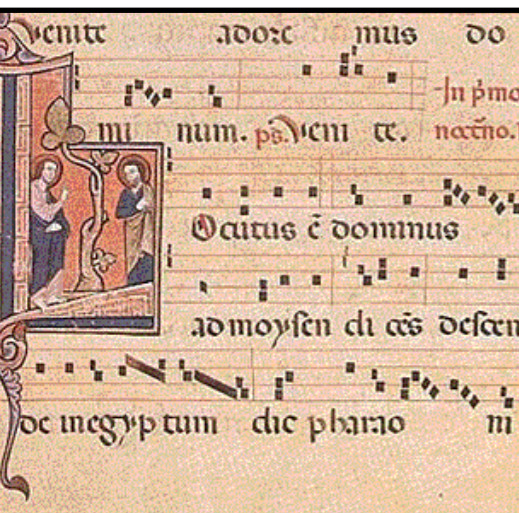 Venite adore mus do
mi num. ps. Veni te. In p̄mo
noct̄no.
Locutus ē dominus
ad moysen di cēs descen
de in egyp tum dic pharao ni